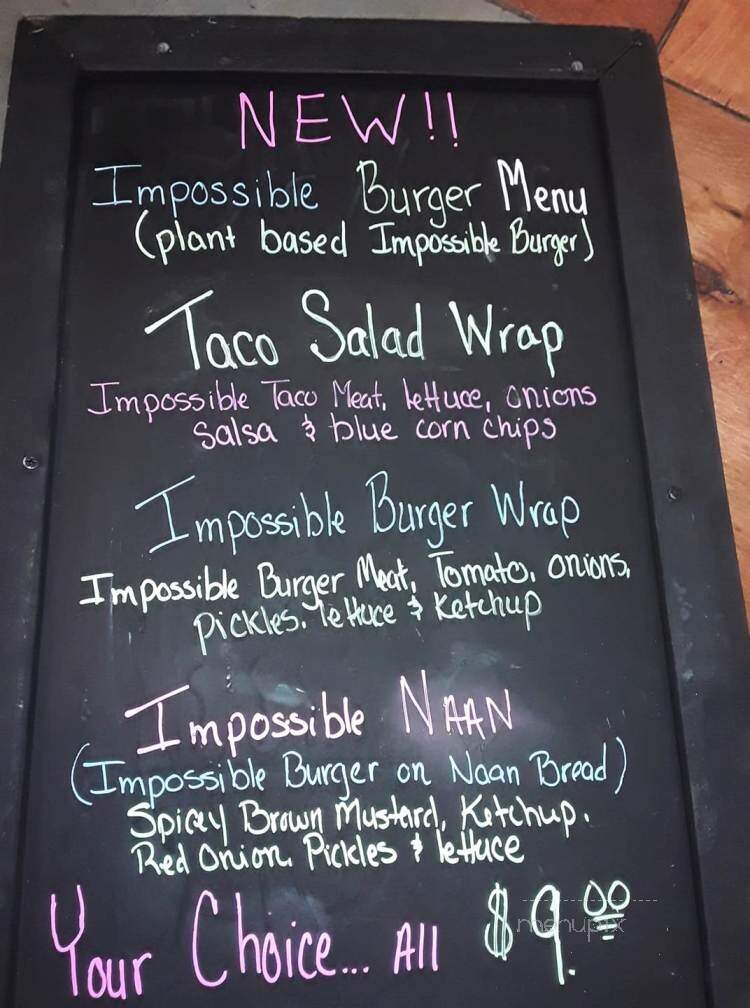 NEW!!
Impossible Burger Menu
(plant based Impossible Burger)
Taco Salad Wrap
Impossible Taco Meat, lettuce, onions
Salsa & blue corn chips
Impossible Burger Wrap
Impossible Burger Meat, Tomato, onions,
pickles, lettuce & Ketchup
Impossible NAAN
(Impossible Burger on Naan Bread)
Spicey Brown Mustard, Ketchup,
Red Onion, Pickles & lettuce
Your Choice... All $9.00
menupix